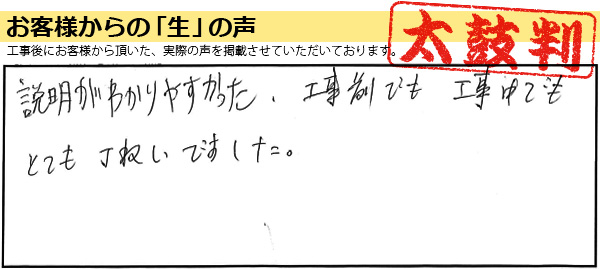 お客様からの「生」の声
太鼓判
工事後にお客様から頂いた、実際の声を掲載させていただいております。
説明がわかりやすかった、工事前でも 工事中でも
とても丁ねいでました。